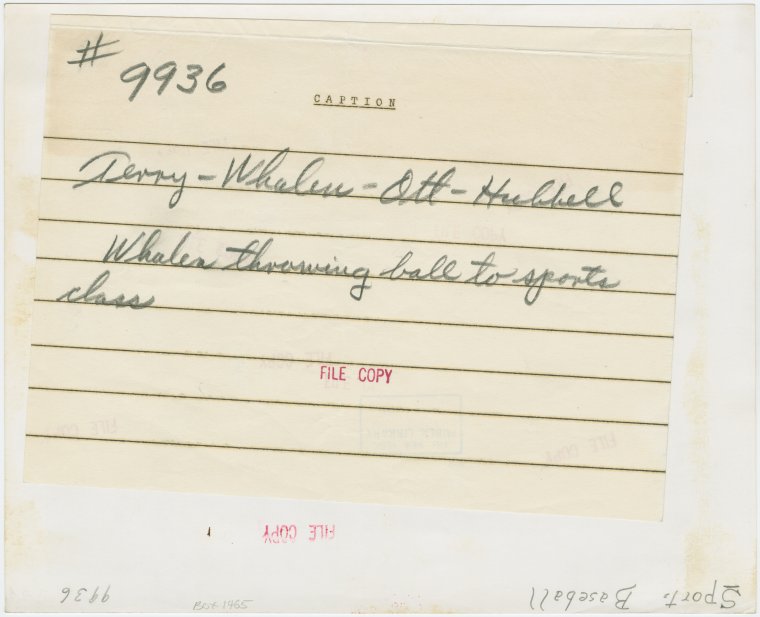 # 9936
CAPTION
Terry - Whalen - Ott - Hubbell
Whalen throwing ball to sports
class
FILE COPY
FILE COPY
9936
Box 1965
Sport. Baseball